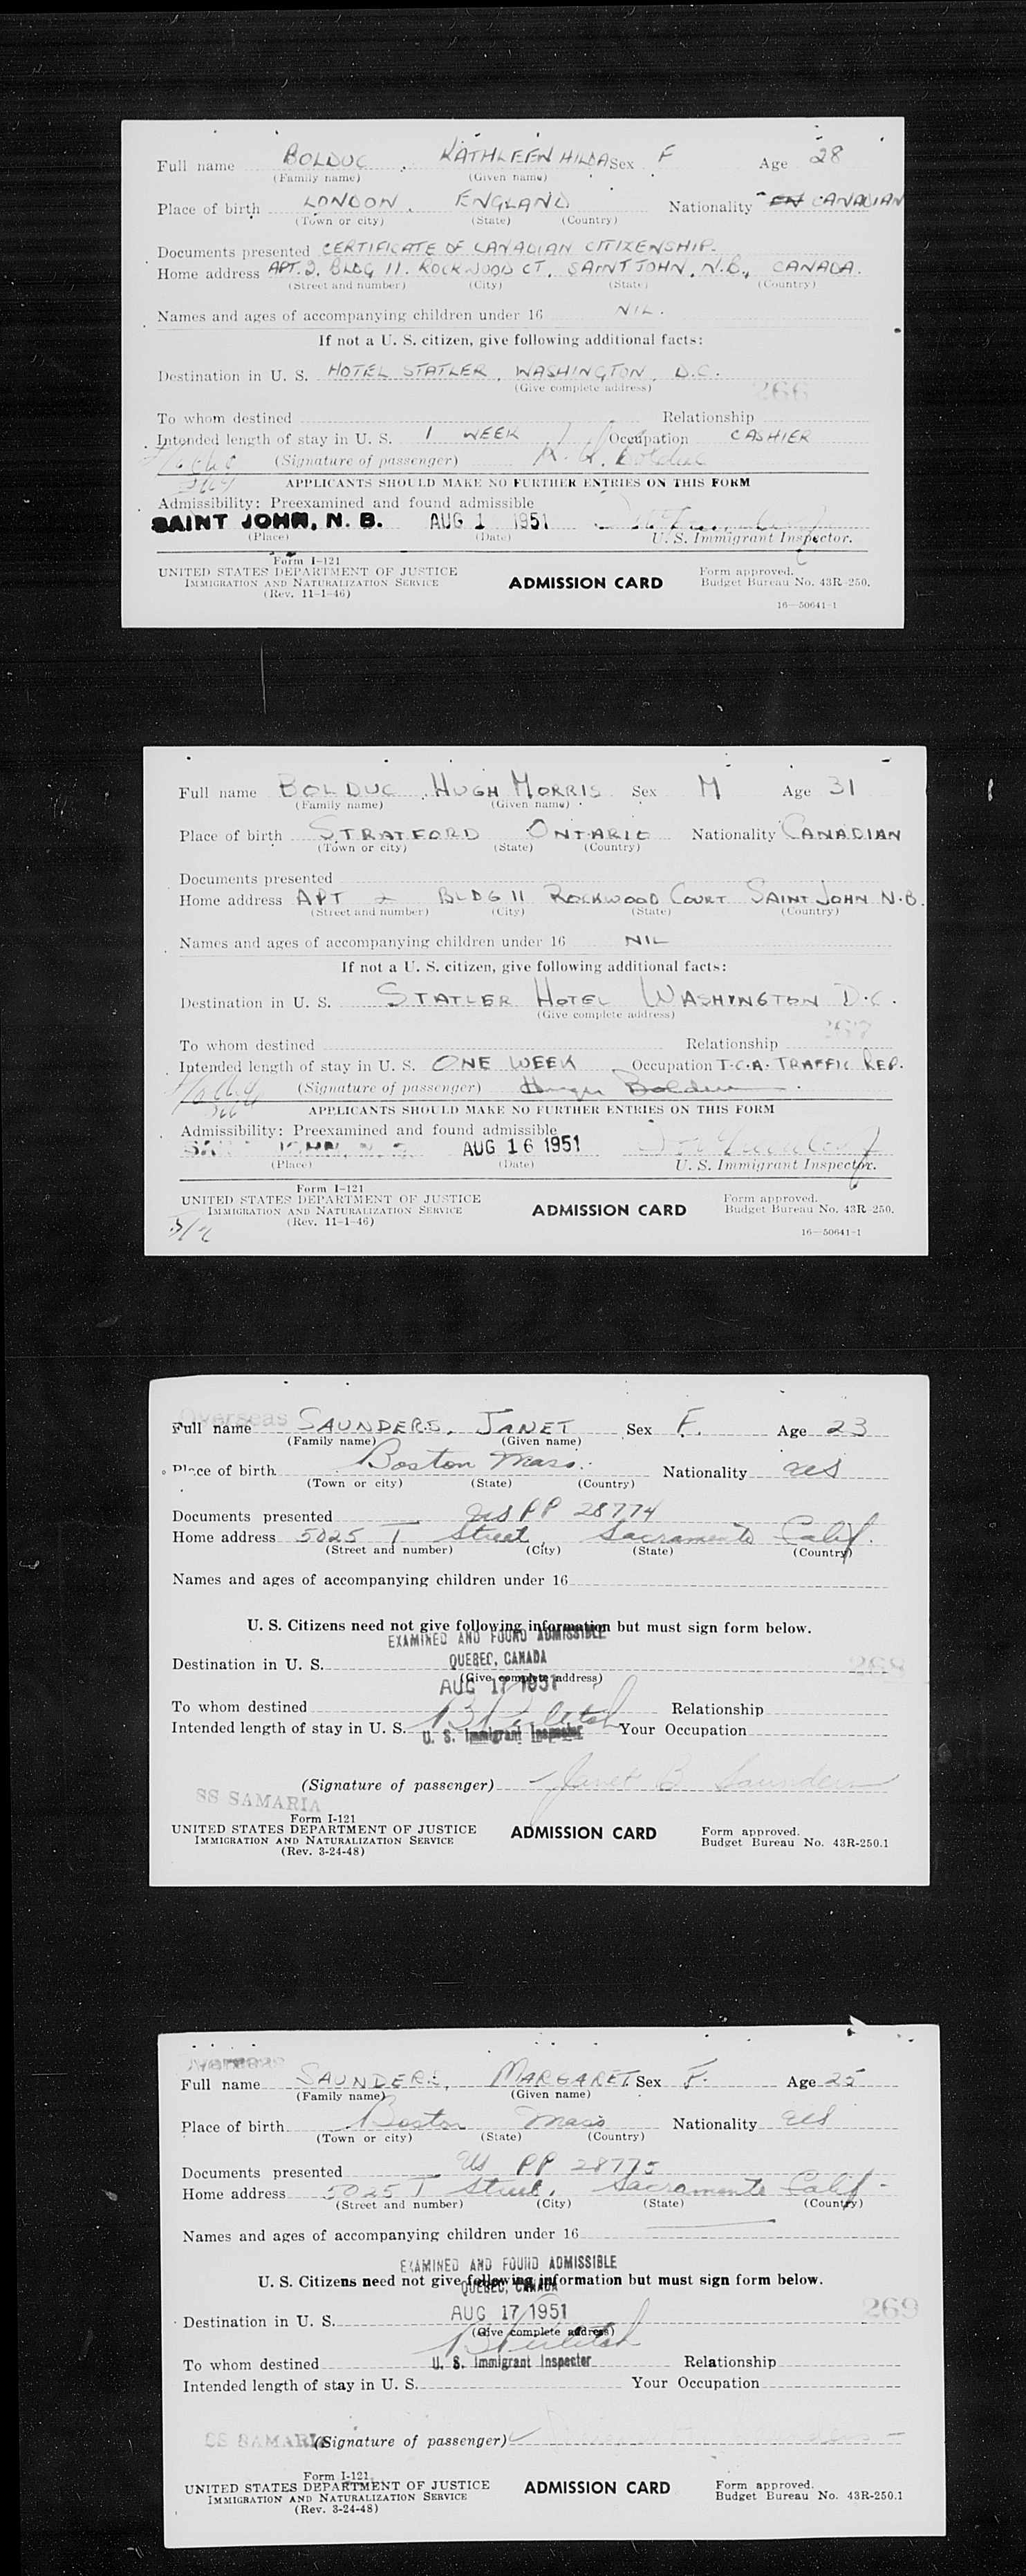 Full name BOLDUC , KATHLEEN HILDA Sex F Age 28
(Family name) (Given name)
Place of birth LONDON, ENGLAND Nationality EN CANADIAN
(Town or city) (State) (Country)
Documents presented CERTIFICATE OF CANADIAN CITIZENSHIP.
Home address APT. 2. BLDG 11. ROCKWOOD CT, SAINT JOHN, N.B., CANADA.
(Street and number) (City) (State) (Country)
Names and ages of accompanying children under 16 NIL.
If not a U. S. citizen, give following additional facts:
Destination in U. S. HOTEL STATLER, WASHINGTON, D.C.
(Give complete address)
266
To whom destined Relationship
Intended length of stay in U. S. 1 WEEK Occupation CASHIER
(Signature of passenger) K. H. Bolduc
APPLICANTS SHOULD MAKE NO FURTHER ENTRIES ON THIS FORM
Admissibility: Preexamined and found admissible
SAINT JOHN, N. B. AUG 1 1951
(Place) (Date) U. S. Immigrant Inspector.
Form I-121
UNITED STATES DEPARTMENT OF JUSTICE
IMMIGRATION AND NATURALIZATION SERVICE
(Rev. 11-1-46)
ADMISSION CARD
Form approved.
Budget Bureau No. 43R-250.
16—50641-1
Full name BOLDUC , HUGH MORRIS Sex M Age 31
(Family name) (Given name)
Place of birth STRATFORD ONTARIO Nationality CANADIAN
(Town or city) (State) (Country)
Documents presented
Home address APT 2 BLDG 11 ROCKWOOD COURT SAINT JOHN N.B.
(Street and number) (City) (State) (Country)
Names and ages of accompanying children under 16 NIL
If not a U. S. citizen, give following additional facts:
Destination in U. S. STATLER HOTEL WASHINGTON D.C.
(Give complete address)
267
To whom destined Relationship
Intended length of stay in U. S. ONE WEEK Occupation T.C.A. TRAFFIC REP.
(Signature of passenger) Bolduc
APPLICANTS SHOULD MAKE NO FURTHER ENTRIES ON THIS FORM
Admissibility: Preexamined and found admissible
AUG 16 1951
(Place) (Date) U. S. Immigrant Inspector.
Form I-121
UNITED STATES DEPARTMENT OF JUSTICE
IMMIGRATION AND NATURALIZATION SERVICE
(Rev. 11-1-46)
ADMISSION CARD
Form approved.
Budget Bureau No. 43R-250.
16—50641-1
Overseas
Full name SAUNDERS, JANET Sex F. Age 23
(Family name) (Given name)
Place of birth Boston Mass. Nationality US
(Town or city) (State) (Country)
Documents presented US PP 28774
Home address 5025 T Street, Sacramento Calif.
(Street and number) (City) (State) (Country)
Names and ages of accompanying children under 16
U. S. Citizens need not give following information but must sign form below.
EXAMINED AND FOUND ADMISSIBLE
QUEBEC, CANADA
Destination in U. S.
(Give complete address)
AUG 17 1951
268
To whom destined Relationship
Intended length of stay in U. S. Your Occupation
U. S. Immigrant Inspector
(Signature of passenger) Janet B Saunders
SS SAMARIA
Form I-121
UNITED STATES DEPARTMENT OF JUSTICE
IMMIGRATION AND NATURALIZATION SERVICE
(Rev. 3-24-48)
ADMISSION CARD
Form approved.
Budget Bureau No. 43R-250.1
Overseas
Full name SAUNDERS, MARGARET Sex F. Age 25
(Family name) (Given name)
Place of birth Boston Mass Nationality US
(Town or city) (State) (Country)
Documents presented US PP 28775
Home address 5025 T Street, Sacramento Calif
(Street and number) (City) (State) (Country)
Names and ages of accompanying children under 16
EXAMINED AND FOUND ADMISSIBLE
U. S. Citizens need not give following information but must sign form below.
QUEBEC, CANADA
AUG 17 1951
269
Destination in U. S.
(Give complete address)
To whom destined U. S. Immigrant Inspector Relationship
Intended length of stay in U. S. Your Occupation
SS SAMARIA (Signature of passenger)
Form I-121
UNITED STATES DEPARTMENT OF JUSTICE
IMMIGRATION AND NATURALIZATION SERVICE
(Rev. 3-24-48)
ADMISSION CARD
Form approved.
Budget Bureau No. 43R-250.1